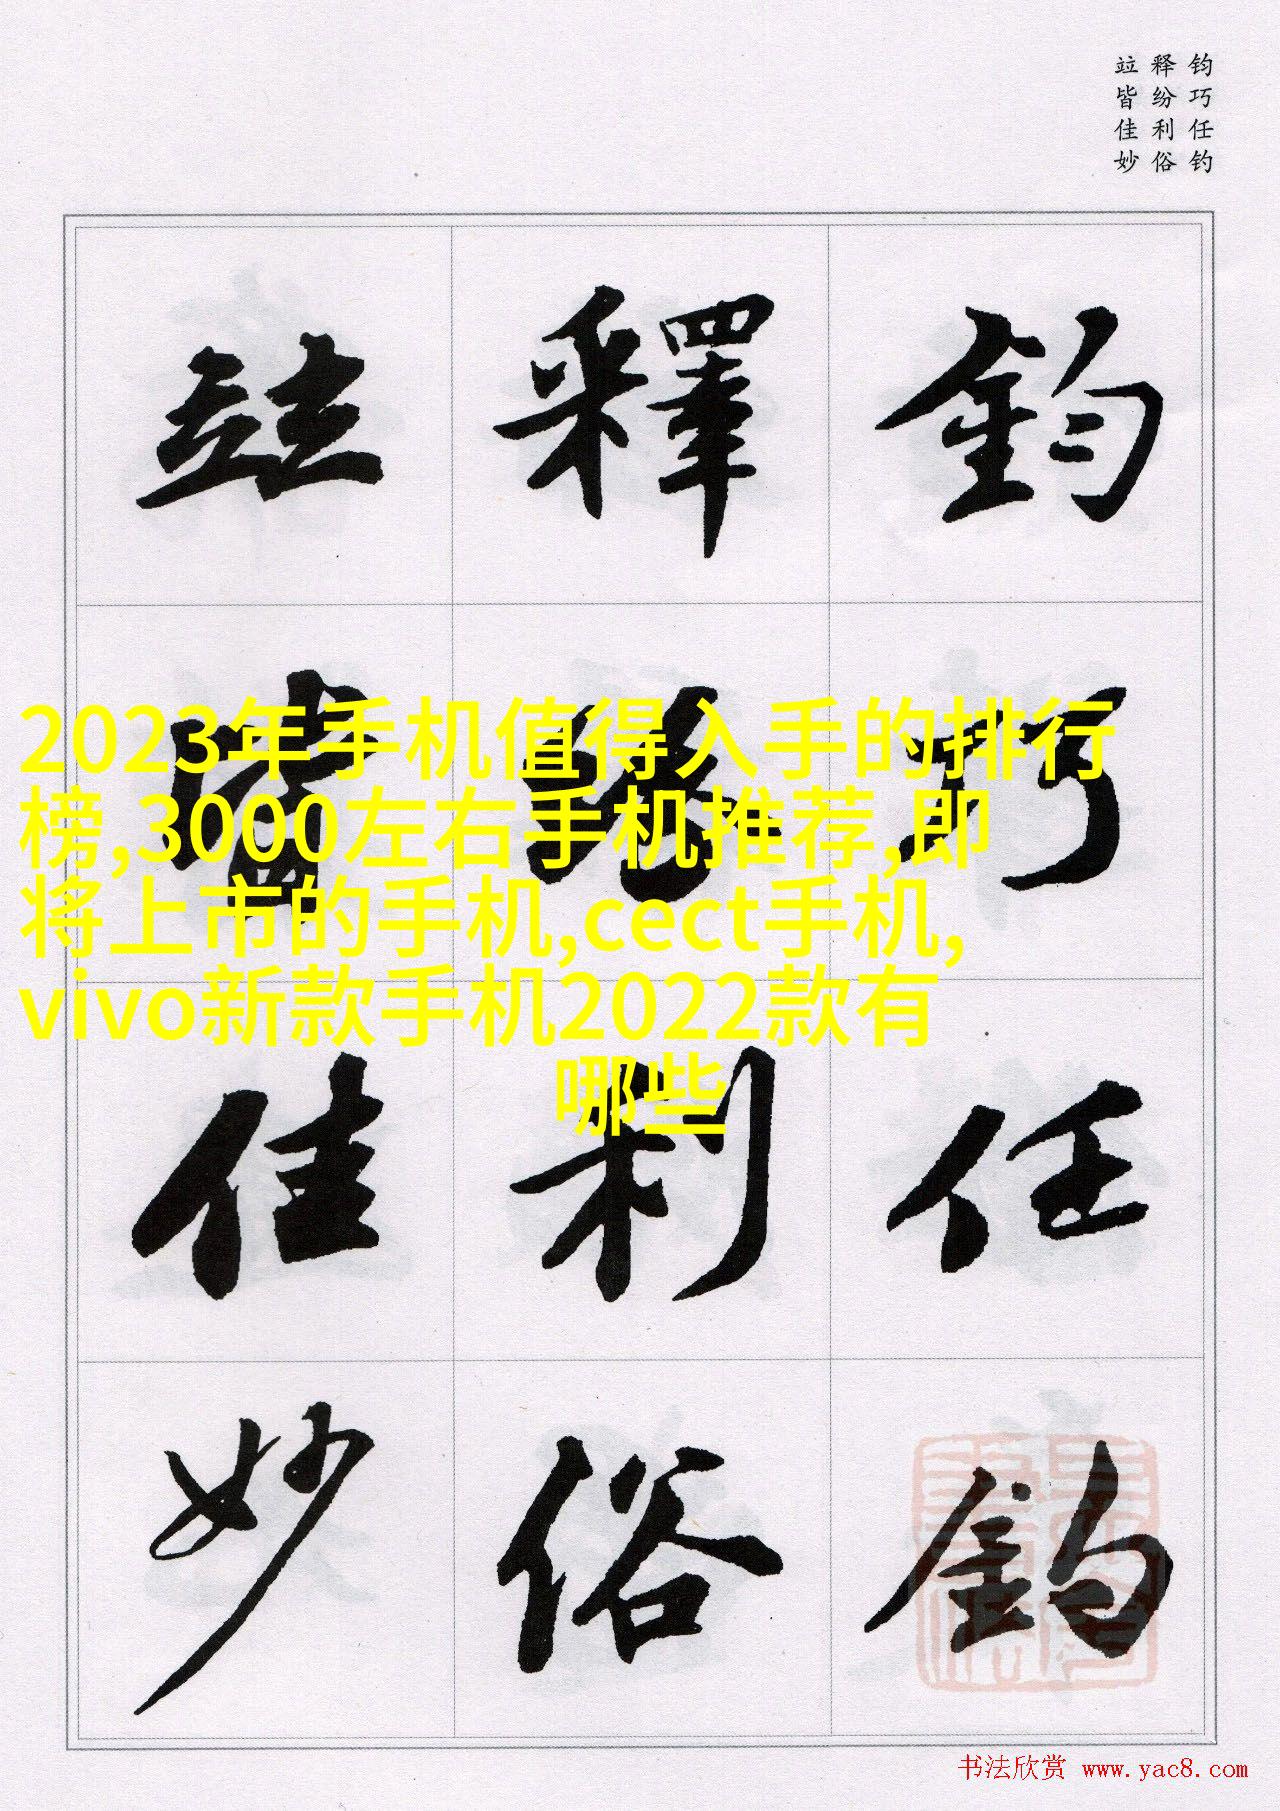 钧巧任钓
释纷利俗
竝皆佳妙
鈞 釋 竝
巧 紛 皆
任 利 佳
釣 俗 妙
2023年手机值得入手的排行
榜,3000左右手机推荐,即
将上市的手机,cect手机,
vivo新款手机2022款有
哪些
书法欣赏 www.yac8.com